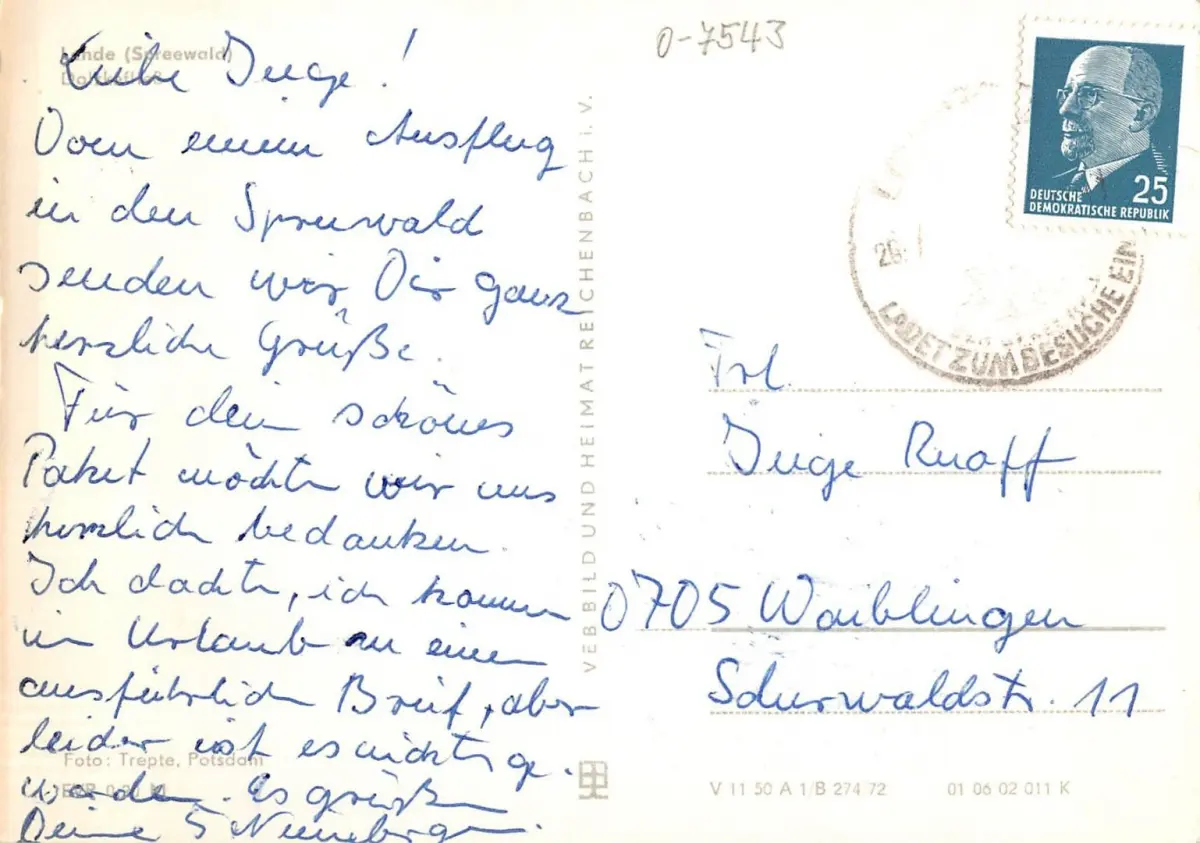 0-7543
(Spreewald)
Liebe Inge!
Von einem Ausflug
in den Spreewald
senden wir Dir ganz
herzliche Grüße.
Für dein schönes
Paket möchten wir uns
herzlich bedanken.
Ich dachte, ich komme
im Urlaub zu einem
ausführlichen Brief, aber
leider ist es nichts ge-
worden. Es grüßen
Deine 5
Foto: Trepte, Potsdam
VEB BILD UND HEIMAT REICHENBACH i. V.
DEUTSCHE
DEMOKRATISCHE REPUBLIK
25
20.
LADET ZUM BESUCHE EIN
Frl.
Inge Knoff
0705 Waiblingen
Schurwaldstr. 11
V 11 50 A 1/B 274 72 01 06 02 011 K